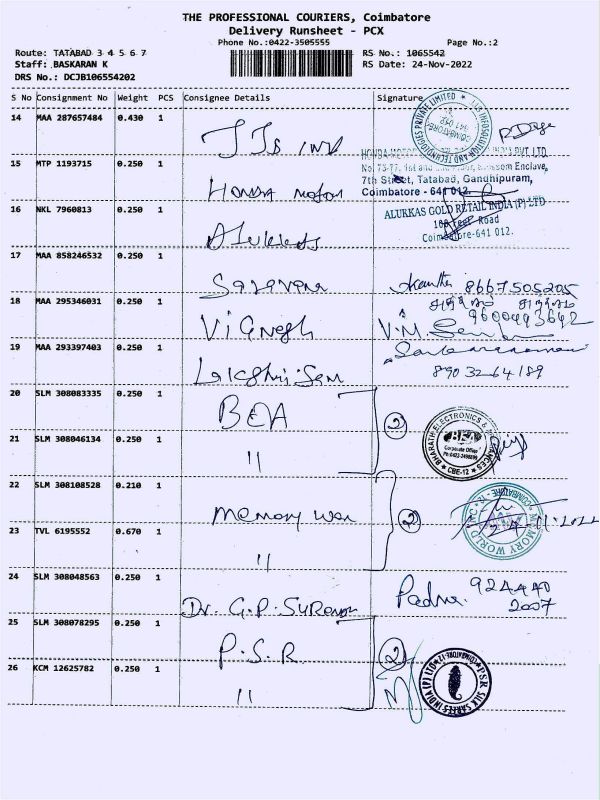 THE PROFESSIONAL COURIERS, Coimbatore
Delivery Runsheet - PCX
Phone No.:0422-3505555
Page No.:2
Route: TATABAD 3 4 5 6 7
RS No.: 1065542
Staff: BASKARAN K
RS Date: 24-Nov-2022
DRS No.: DCJB106554202
S No Consignment No Weight PCS Consignee Details Signature
14 MAA 287657484 0.430 1
15 MTP 1193715 0.250 1
No. 73-77, 1st and
som Enclave,
7th Street, Tatabad, Gandhipuram,
Honda motor
Coimbatore - 641 012.
16 NKL 7960813 0.250 1
ALURKAS GOLD RETAIL INDIA (P) LTD
100 Feet Road
Coimbatore-641 012.
17 MAA 858246532 0.250 1
Saravana
8667505205
18 MAA 295346031 0.250 1
Vignesh
9600493642
19 MAA 293397403 0.250 1
8903264189
20 SLM 308083335 0.250 1
BEA
2
BHARATH ELECTRONICS &
BEA
Corporate Office
CBE-12
21 SLM 308046134 0.250 1
"
22 SLM 308108528 0.210 1
memory
2
MEMORY WORLD INC
COIMBATORE
23 TVL 6195552 0.670 1
"
24 SLM 308048563 0.250 1
Dr. G.P. Suresh
Padma.
924440
2007
25 SLM 308078295 0.250 1
P.S.R
2
PSR SILK SAREES INDIA (P) LTD
COIMBATORE-12
26 KCM 12625782 0.250 1
"